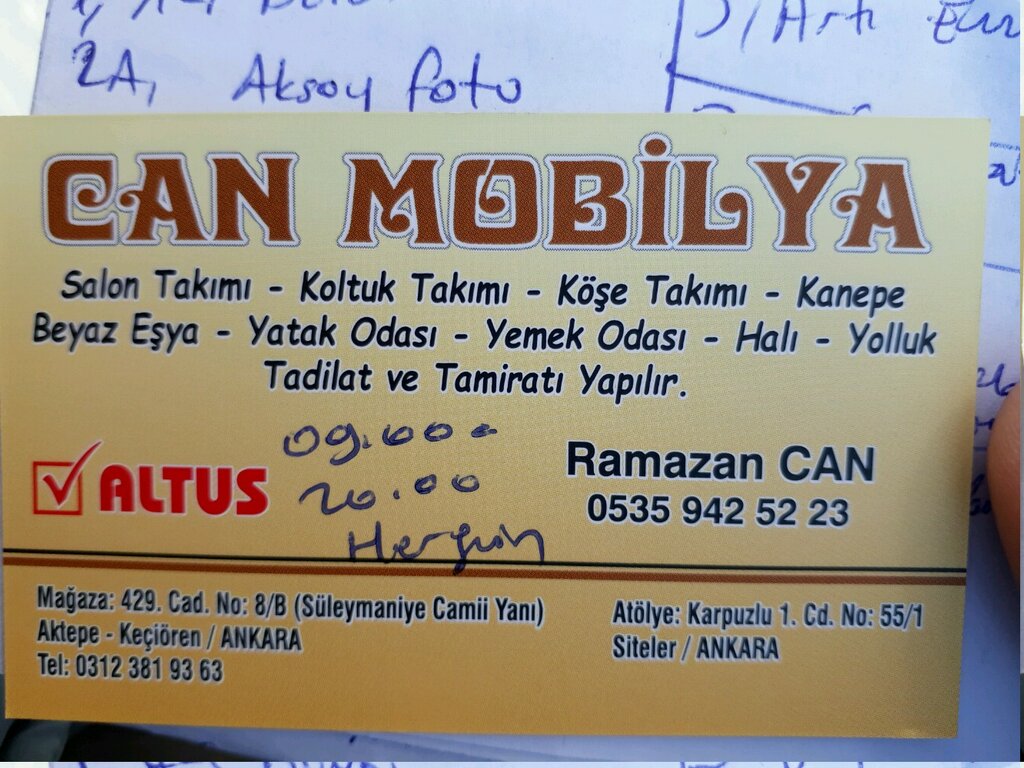 2A, Aksoy foto
CAN MOBİLYA
Salon Takımı - Koltuk Takımı - Köşe Takımı - Kanepe
Beyaz Eşya - Yatak Odası - Yemek Odası - Halı - Yolluk
Tadilat ve Tamiratı Yapılır.
09.00 -
20.00
Hergün
ALTUS
Ramazan CAN
0535 942 52 23
Mağaza: 429. Cad. No: 8/B (Süleymaniye Camii Yanı)
Aktepe - Keçiören / ANKARA
Tel: 0312 381 93 63
Atölye: Karpuzlu 1. Cd. No: 55/1
Siteler / ANKARA